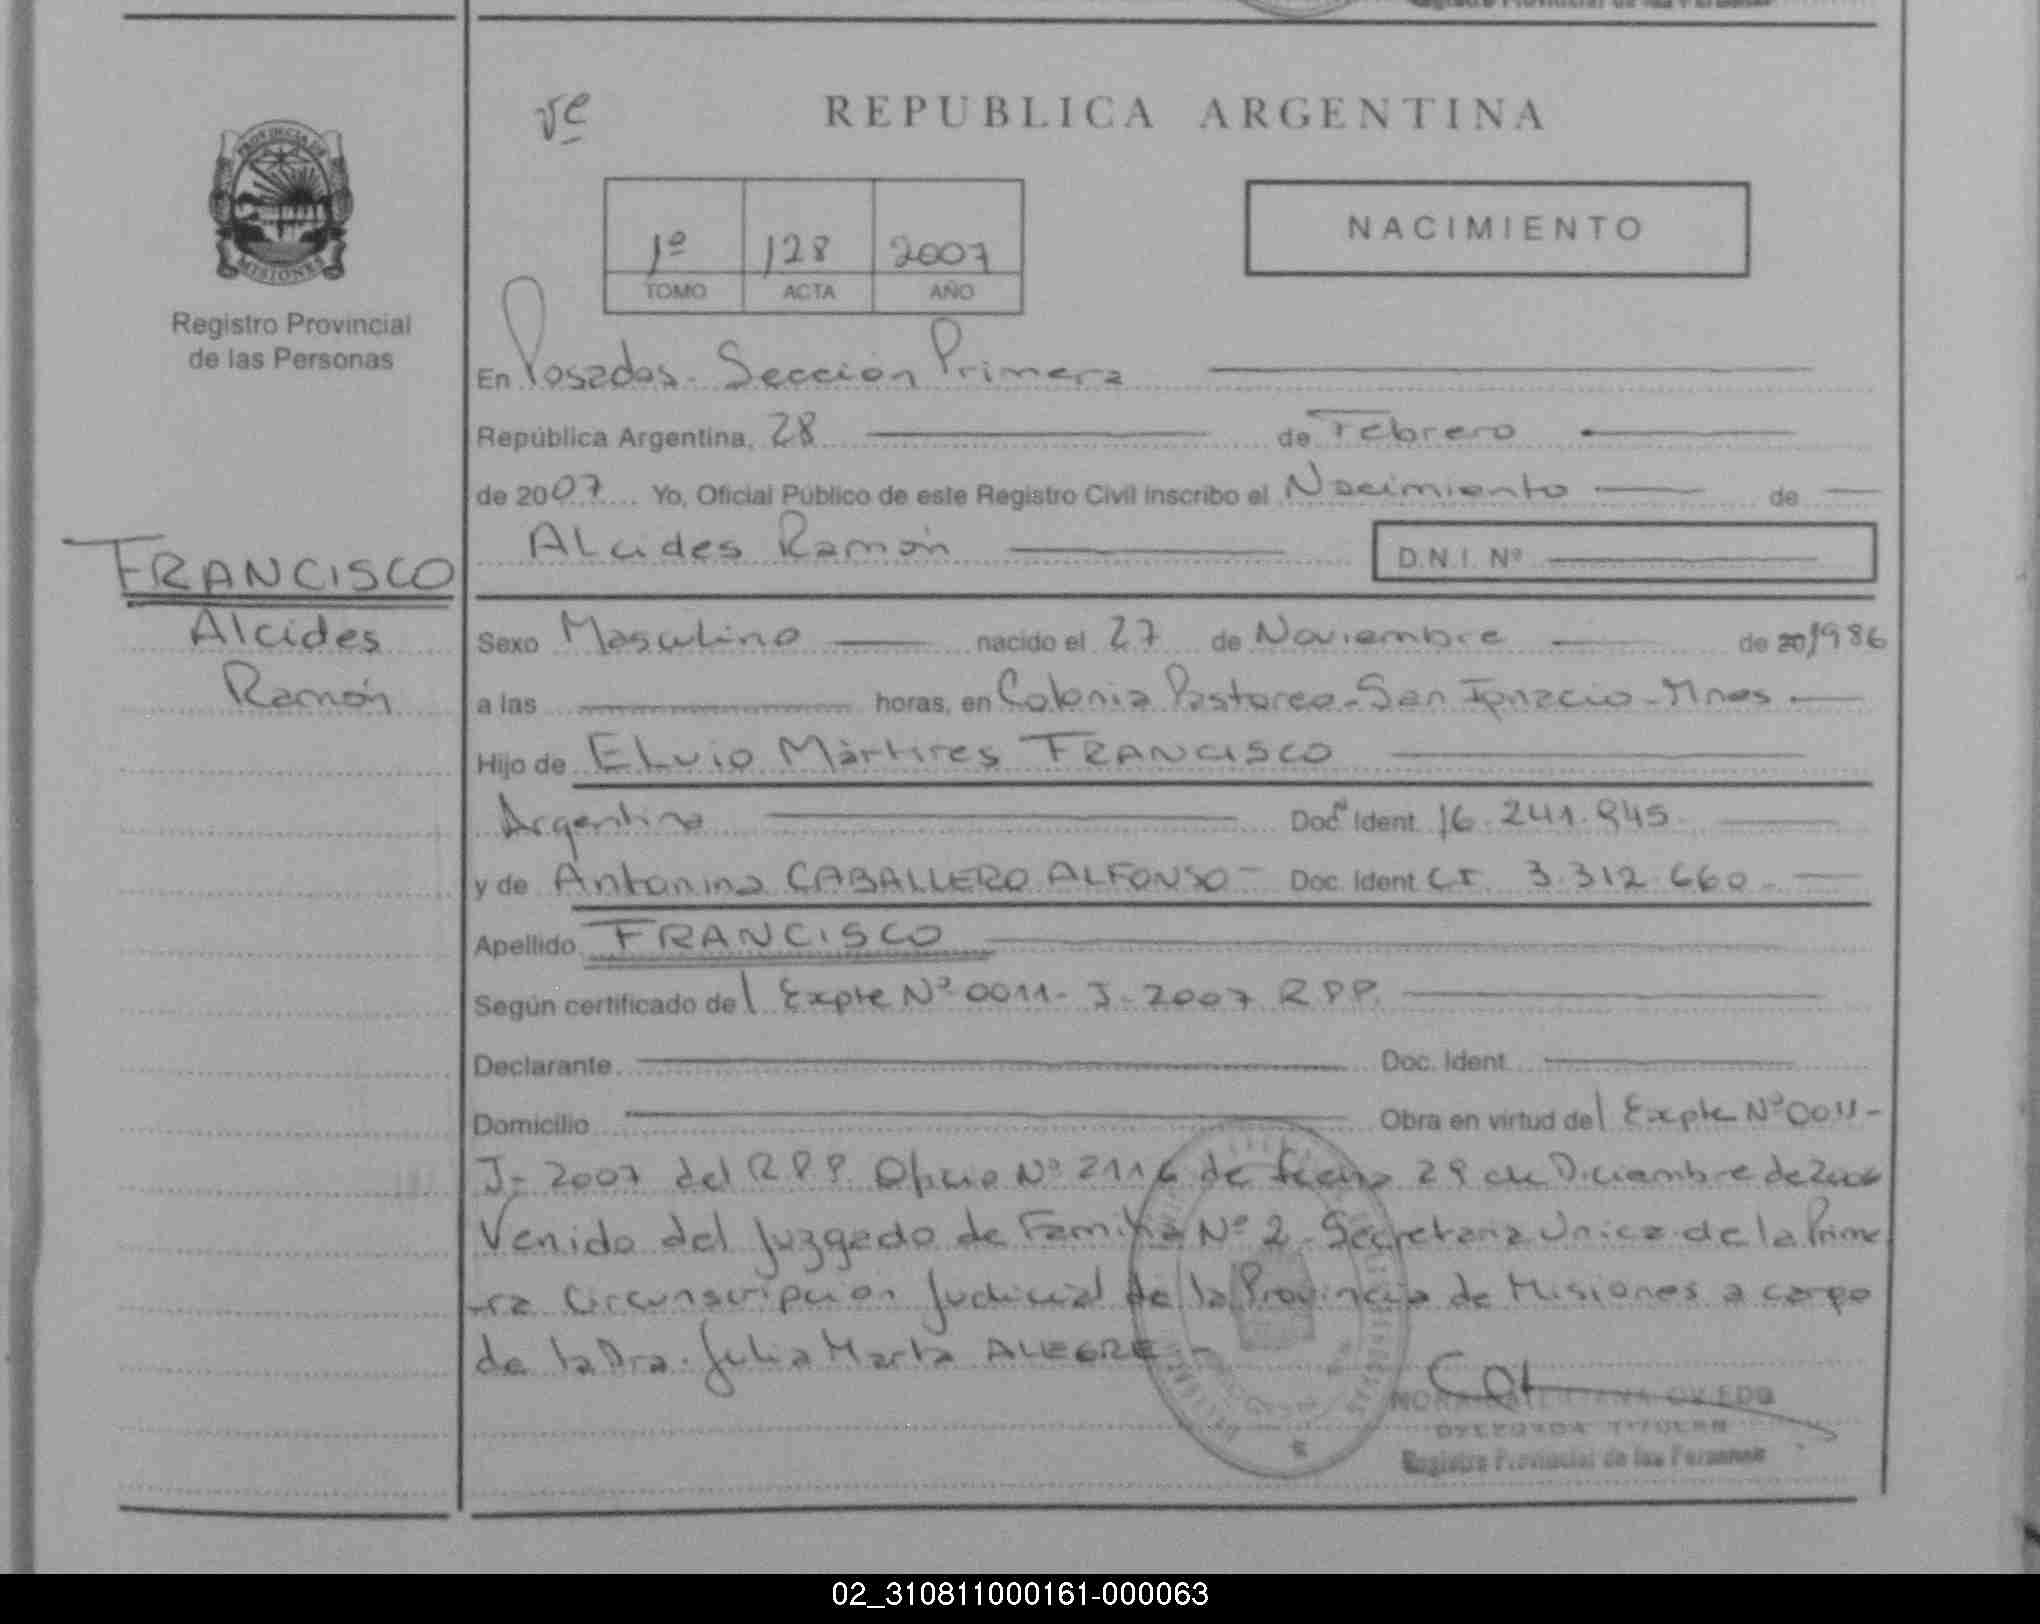 Registro Provincial de las Personas
ve
REPUBLICA ARGENTINA
PROVINCIA DE
MISIONES
Registro Provincial
de las Personas
1º 128 2007
TOMO ACTA AÑO
NACIMIENTO
En Posadas - Sección Primera
República Argentina, 28 de Febrero
de 2007 Yo, Oficial Público de este Registro Civil inscribo el Nacimiento de
Alcides Ramón D.N.I. Nº
FRANCISCO
Alcides
Ramón
Sexo Masculino nacido el 27 de Noviembre de 20/1986
a las horas, en Colonia Pastoreo - San Ignacio - Mnes
Hijo de Elvio Mártires FRANCISCO
Argentino Doc. Ident. 16.241.945
y de Antonina CABALLERO ALFONSO - Doc. Ident. C.I. 3.312.660
Apellido FRANCISCO
Según certificado del Expte Nº 0011 - J - 2007 R.P.P.
Declarante Doc. Ident.
Domicilio Obra en virtud del Expte Nº 0011 -
J - 2007 del R.P.P. Oficio Nº 2116 de fecha 29 de Diciembre de 2006
Venido del Juzgado de Familia Nº 2 - Secretaria Unica de la Prime
-ra Circunscripción Judicial de la Provincia de Misiones a cargo
de la Dra. Julia Marta ALEGRE.-
OVIEDO
TITULAR
Registro Provincial de las Personas
02_310811000161-000063